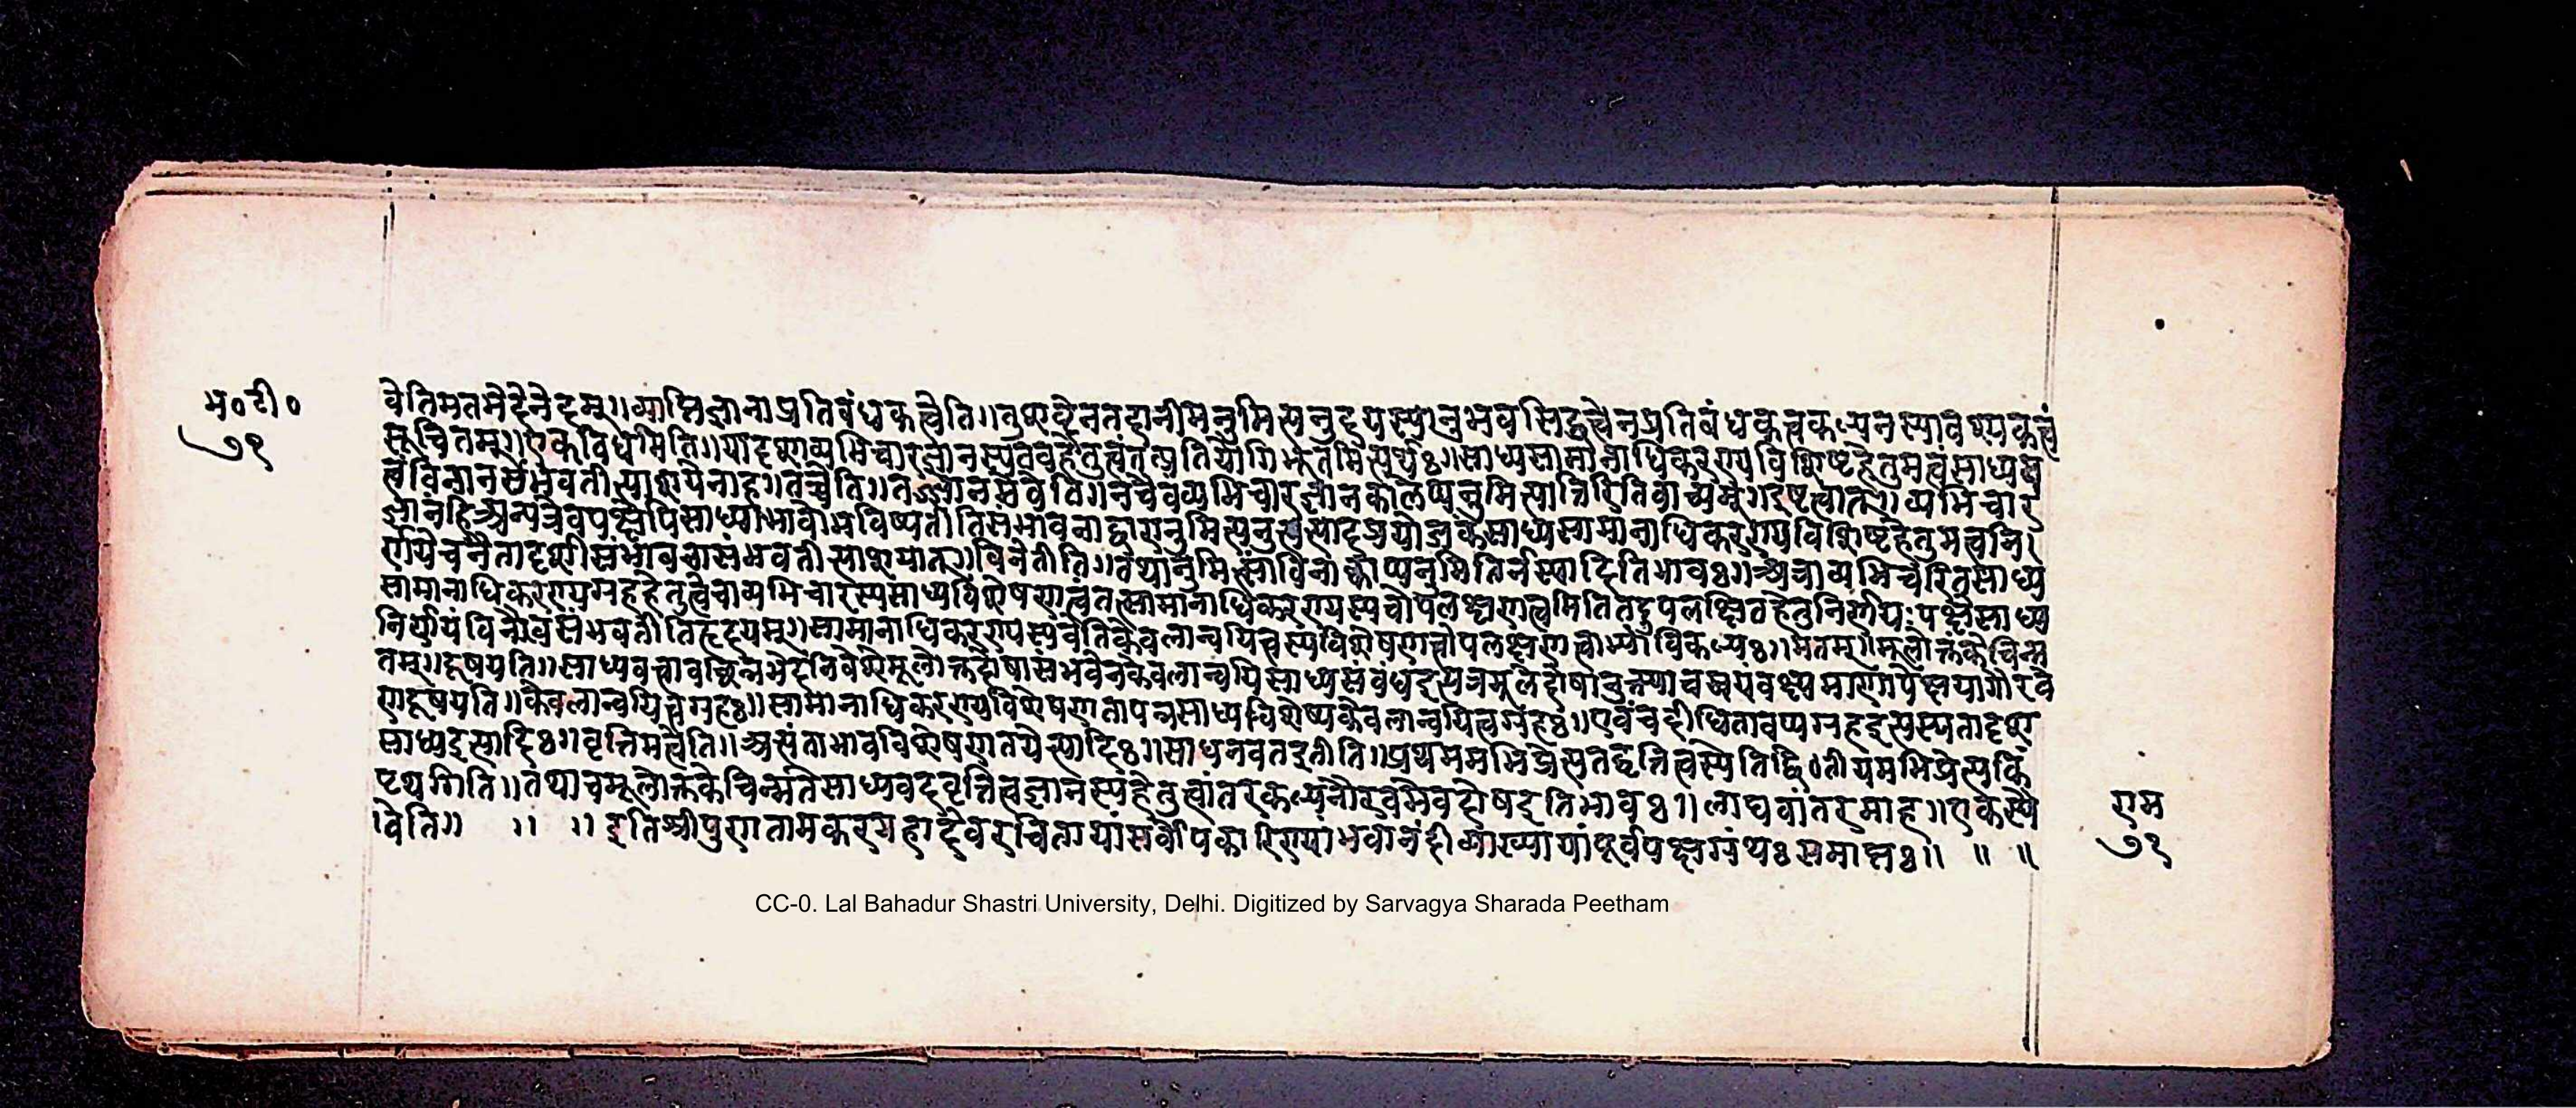 भ०टी०
७१
वेतिमतभेदेनेदम्॥व्याप्तिज्ञानाप्रतिबंधकत्वेति॥तुशब्देनतदानीमनुमित्यनुदयस्यानुभवसिद्धत्वेनप्रतिबंधकत्वकल्पनस्यावश्यकत्वं
सूचितम्॥एकविधमिति॥यादृशव्यभिचारज्ञानस्य हेतुत्वंतत्प्रतियोगिभूतमित्यर्थः॥साध्यसामानाधिकरण्यविशिष्टहेतुमत्वसाध्यव
त्वंविनानसंभवतीत्याशयेनाह॥तच्चेति॥तज्ज्ञानमेवेति॥नचैवंव्यभिचारज्ञानकालेप्यनुमित्यापत्तिरितिवाच्यम्॥इष्टत्वात्॥व्यभिचार
ज्ञानंहिअन्यत्रेवपक्षेपिसाध्याभावोभविष्यतीतिसंभावनाद्वारानुमित्यनुत्पादप्रयोजकंसाध्यसामानाधिकरण्यविशिष्टहेतुमत्वनि
र्णयेचनैतादृशीसंभावनासंभवतीत्याशयात्॥विनेतीति॥तथानुमित्सांविनाक्वाप्यनुमितिर्नस्यादितिभावः॥अत्राव्यभिचरितसाध्य
सामानाधिकरण्यग्रहहेतुत्वेचाव्यभिचारस्यसाध्यविशेषणत्वंतत्सामानाधिकरण्यस्यचोपलक्षणत्वमितितदुपलक्षितहेतुनिर्णयःपक्षेसाध्य
निर्णयंविनैवसंभवतीतिहृदयम्॥सामानाधिकरण्यस्येवेतिकेवलान्वयित्वस्यविशेषणत्वोपलक्षणत्वाभ्यांविकल्पः॥मतम्॥मूलोक्तंकेचिन्म
तम्॥दूषयति॥साध्यवत्वावच्छिन्नभेदनिवेशेमूलोक्तदोषासंभवेनकेवलान्वयिसाध्यसंबंधइत्यत्रमूलेदोषानुक्त्याचस्वयंवक्ष्यमाणापेक्षयागौरवे
णदूषयति॥केवलान्वयित्वग्रहः॥सामानाधिकरण्यविशेषणतापन्नसाध्यविशेष्यकेवलान्वयित्वग्रहः॥एवंचदीधितावप्यग्रहइत्यस्यतादृश
साध्यइत्यादिः॥वृत्तिमत्वेति॥अत्यंताभावविशेषणतयेत्यादिः॥साधनवतइतीति॥प्रथममभिप्रेत्यतद्वृत्तित्वस्येतिद्वितीयमभिप्रेत्यकिं
पृथगिति॥तथाचमूलोक्तकेचिन्मतेसाध्यवदवृत्तित्वज्ञानस्यहेतुत्वांतरकल्पनेगौरवमेवदोषइतिभावः॥लाघवांतरमाह॥एकस्यै
वेति॥ ॥ ॥इतिश्रीपुणतामकरमहादेवरचितायांसर्वोपकारिण्यांभवानंदीव्याख्यायांपूर्वपक्षग्रंथःसमाप्तः॥ ॥ ॥
राम
७१
CC-0. Lal Bahadur Shastri University, Delhi. Digitized by Sarvagya Sharada Peetham